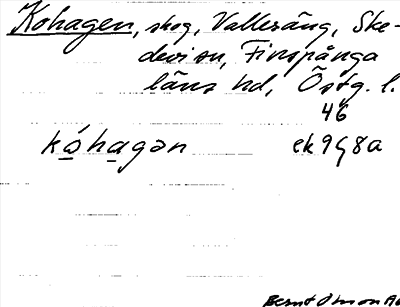 Kohagen, skog, Vallesäng, Ske-
devi sn, Finspånga
läns hd, Östg. l.
46
kóhagən ek 958a
Bernt Olsson